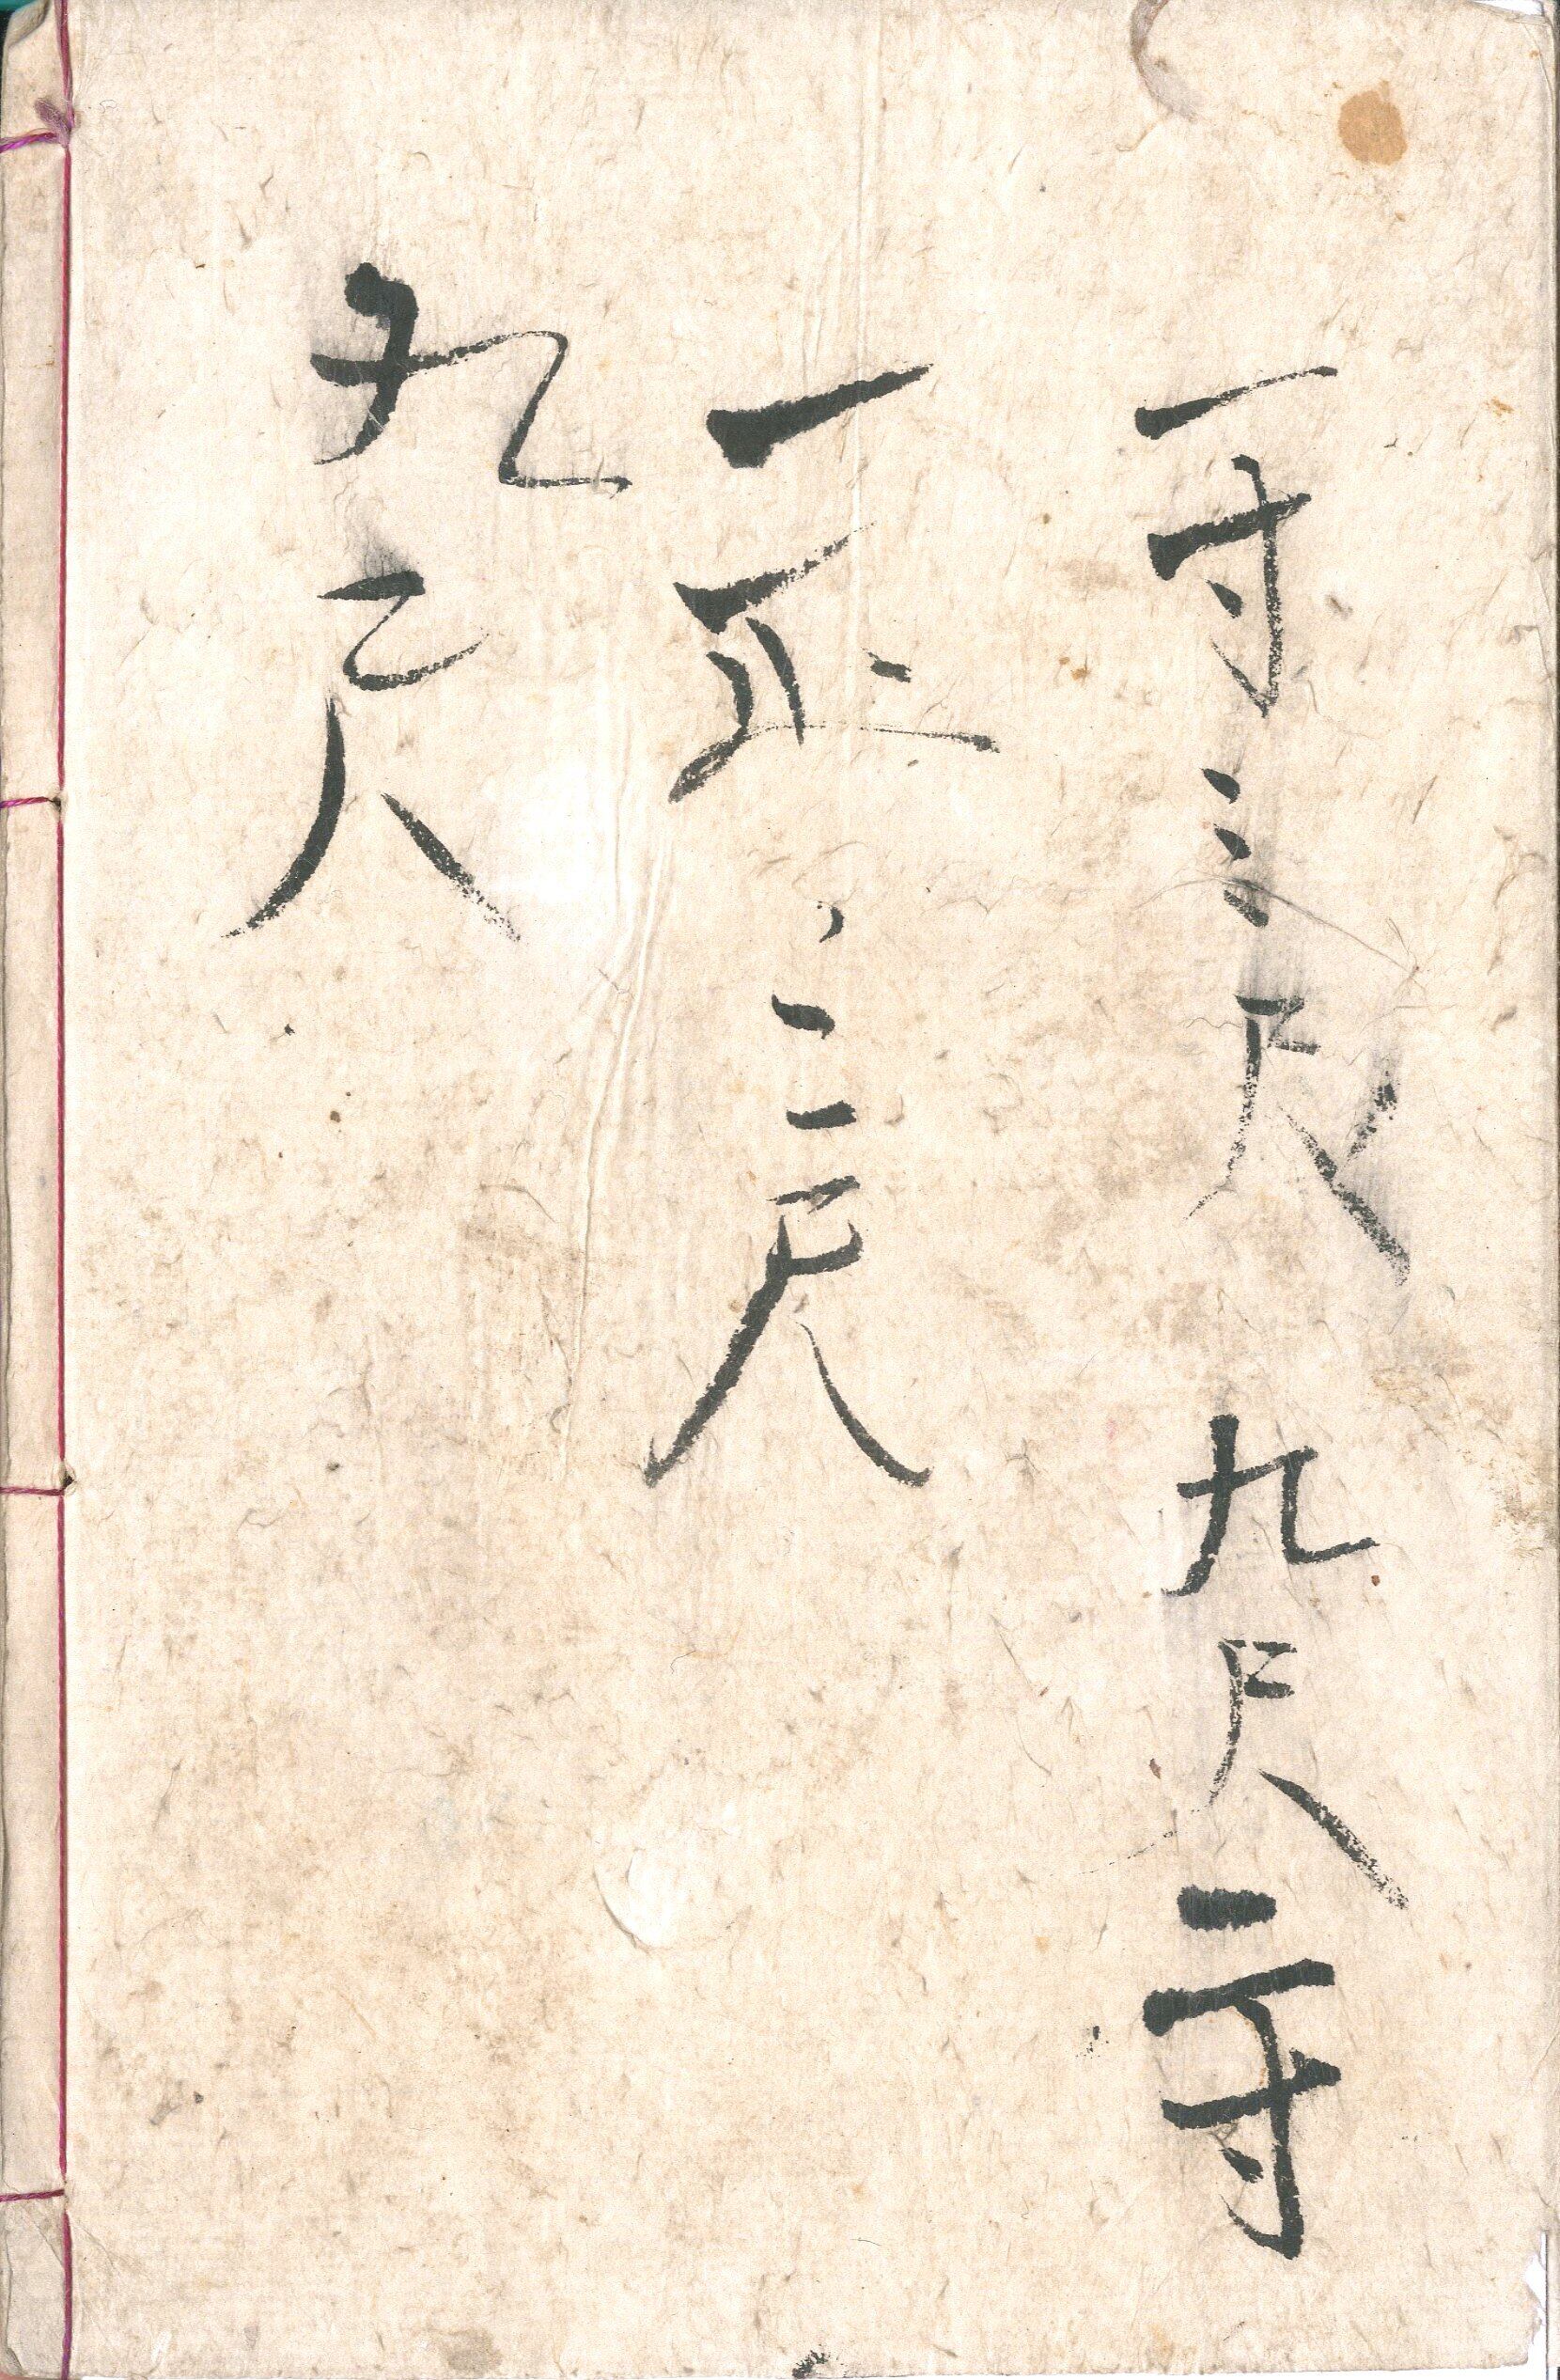 一寸三尺 九尺二寸
一疋三尺
九尺